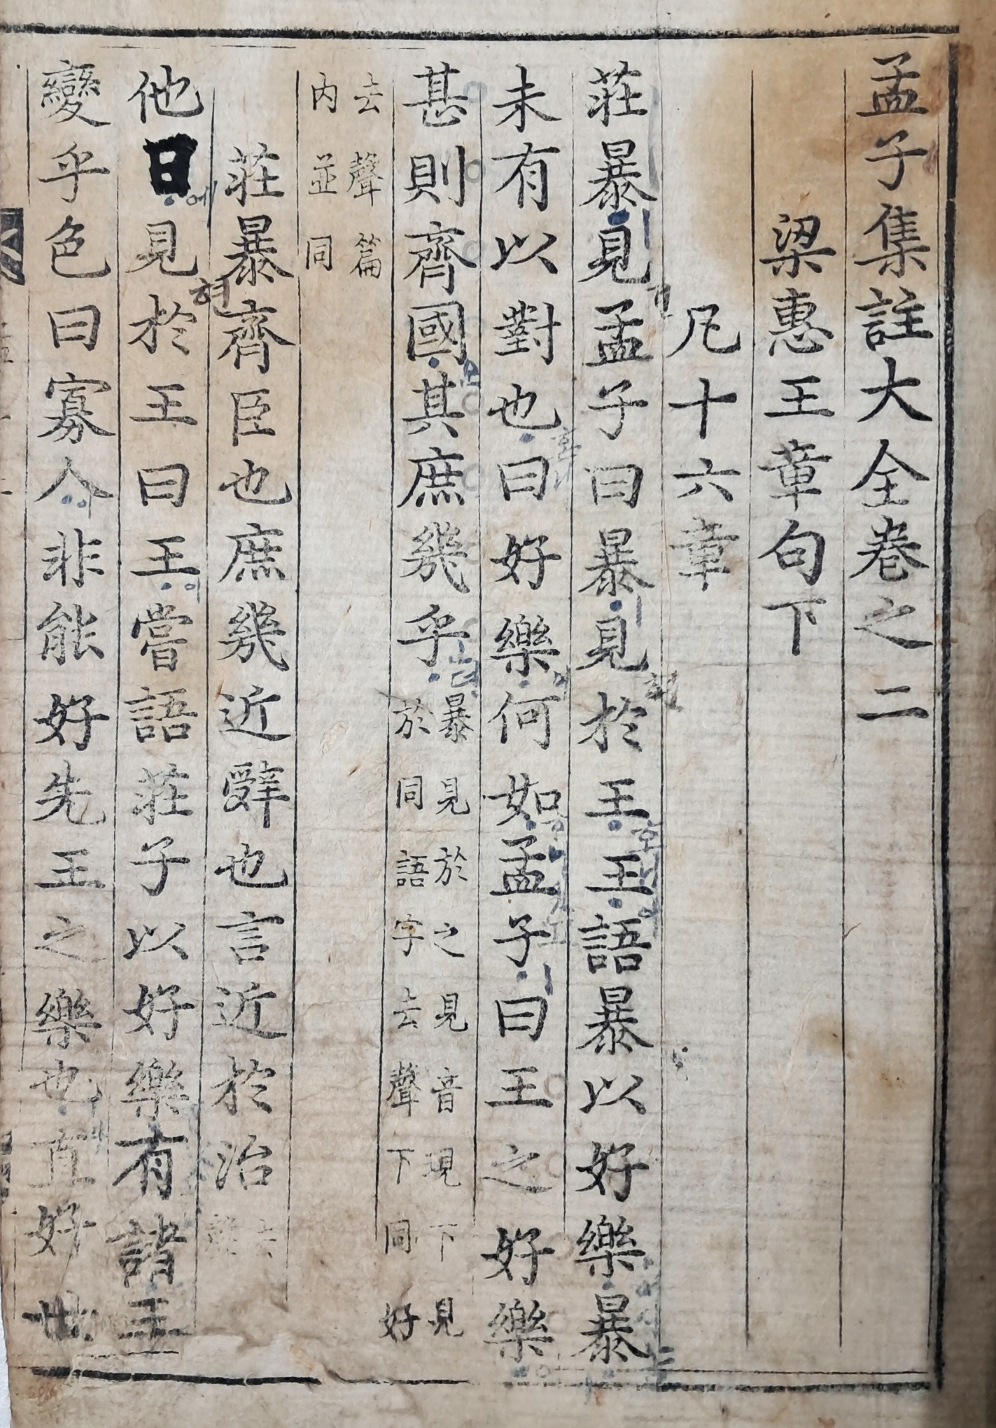 孟子集註大全卷之二
梁惠王章句下
凡十六章
莊暴見孟子曰暴見於王王語暴以好樂暴
未有以對也曰好樂何如孟子曰王之好樂
甚則齊國其庶幾乎
暴見於之見音現下見
於同語字去聲下同好
去聲篇
内並同
莊暴齊臣也庶幾近辭也言近於治
他日見於王曰王嘗語莊子以好樂有諸王
變乎色曰寡人非能好先王之樂也直好世